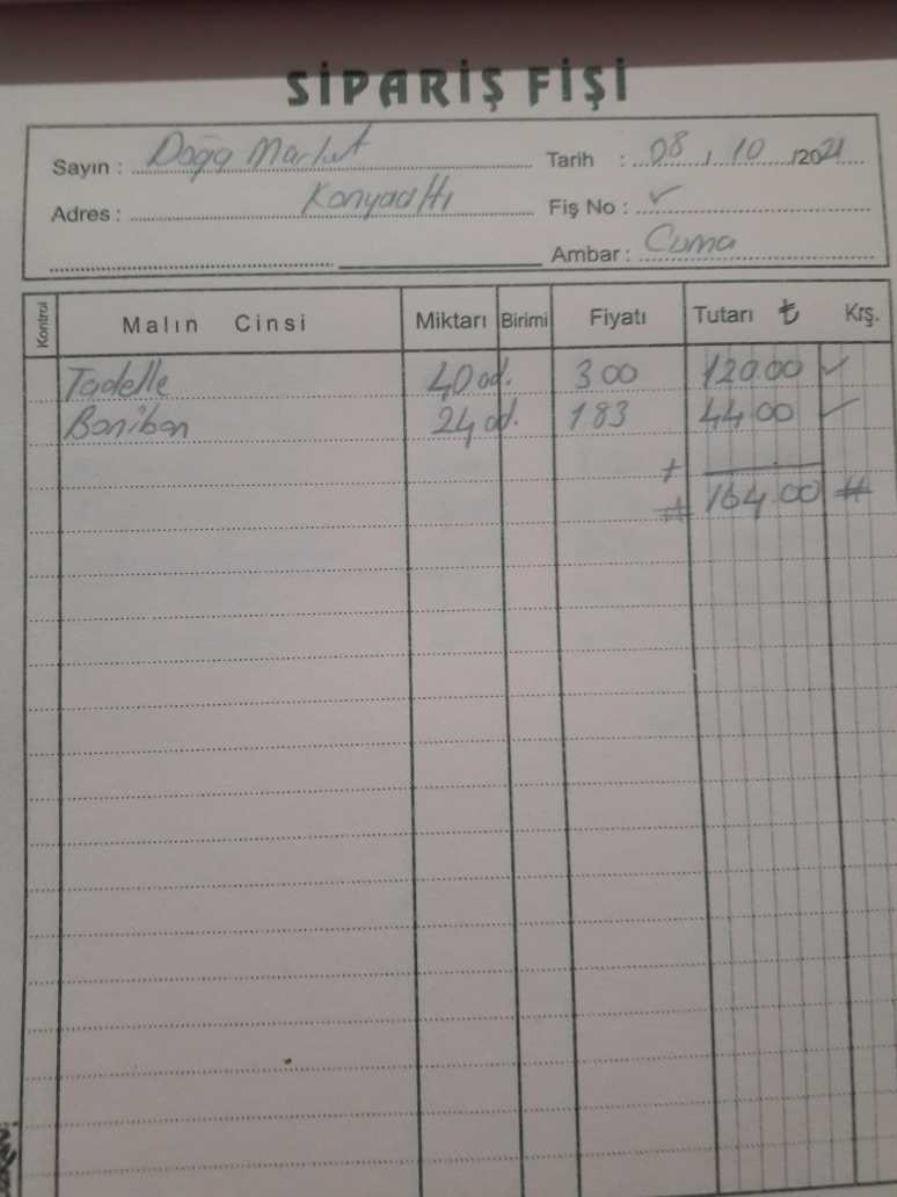 SİPARİŞ FİŞİ
Sayın : Doğa Market Tarih : 08 / 10 /2021
Adres : Konyaaltı Fiş No : ✓
Ambar : Cuma
Kontrol Malın Cinsi Miktarı Birimi Fiyatı Tutarı ₺ Krş.
Tadelle 40 ad. 3 00 120.00 ✓
Bonibon 24 ad. 1 83 44 00 ✓
+
# 164.00 #